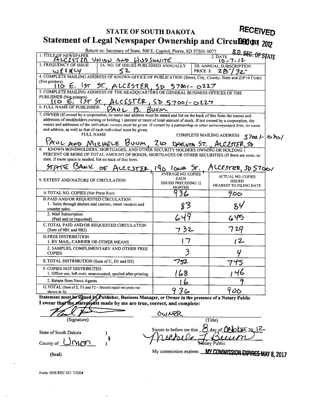 STATE OF SOUTH DAKOTA
RECEIVED
Statement of Legal Newspaper Ownership and Circulation
2012
Return to: Secretary of State, 500 E. Capitol, Pierre, SD 57501-5077
S.D. SEC. OF STATE
1. TITLE OF NEWSPAPER
ALCESTER UNION AND HUDSONITE
2. DATE
10-7-12
3. FREQUENCY OF ISSUE
WEEKLY
3A. NO. OF ISSUES PUBLISHED ANNUALLY
52
3B. ANNUAL SUBSCRIPTION
PRICE $
4. COMPLETE MAILING ADDRESS OF KNOWN OFFICE OF PUBLICATION (Street, City, County, State and ZIP+4 Code)
(Not printers)
110 E. 1ST ST, ALCESTER, SD 57001-0227
5. COMPLETE MAILING ADDRESS OF THE HEADQUARTERS OR GENERAL BUSINESS OFFICES OF THE
PUBLISHER (Not printer)
110 E. 1ST ST, ALCESTER, SD 57001-0227
6. FULL NAME OF PUBLISHER:
PAUL B. BUUM
7. OWNER (If owned by a corporation, its name and address must be stated and list on the back of this form the names and
addresses of stockholders owning or holding 1 percent or more of total amount of stock. If not owned by a corporation, the
names and addresses of the individual owners must be given. If owned by a partnership or other unincorporated firm, its name
and address, as well as that of each individual must be given.
FULL NAME
COMPLETE MAILING ADDRESS
PAUL AND MICHELE BUUM, 210 DAKOTA ST, ALCESTER, SD
8. KNOWN BONDHOLDERS, MORTGAGES, AND OTHER SECURITY HOLDERS OWNING OR HOLDING 1
PERCENT OR MORE OF TOTAL AMOUNT OF BONDS, MORTGAGES OR OTHER SECURITIES (If there are none, so
state. If more space is needed, list on back of this form.
STATE BANK OF ALCESTER, ALCESTER, SD 57001
9. EXTENT AND NATURE OF CIRCULATION
AVERAGE NO. COPIES
ISSUED PRECEDING 12
MONTHS
ACTUAL NO. COPIES
ISSUED
NEAREST TO FILING DATE
A. TOTAL NO. COPIES (Net Press Run)
936
900
B. PAID AND/OR REQUESTED CIRCULATION
1. Sales through dealers and carriers, street vendors and
counter sales.
83
84
2. Mail Subscription
(Paid and or requested)
649
645
C. TOTAL PAID AND/OR REQUESTED CIRCULATION
(Sum of 9B1 and 9B2)
732
729
D. FREE DISTRIBUTION
1. BY MAIL, CARRIER OR OTHER MEANS
17
12
2. SAMPLES, COMPLIMENTARY AND OTHER FREE
COPIES
3
4
E. TOTAL DISTRIBUTION (Sum of C, D1 and D2)
752
745
F. COPIES NOT DISTRIBUTED
1. Office use, left over, unaccounted, spoiled after printing
168
146
2. Return from News Agents
16
9
G. TOTAL (Sum of E, F1 and F2 - Should equal net press run
shown in A)
936
900
Statement must be signed by Publisher, Business Manager, or Owner in the presence of a Notary Public
I swear that the statements made by me are true, correct, and complete:
OWNER
(Signature)
(Title)
State of South Dakota )
Sworn to before me this 8 day of October, 2012.
§
Michele J. Buum
County of Union )
Notary Public
(Seal)
My commission expires: MY COMMISSION EXPIRES MAY 8, 2017